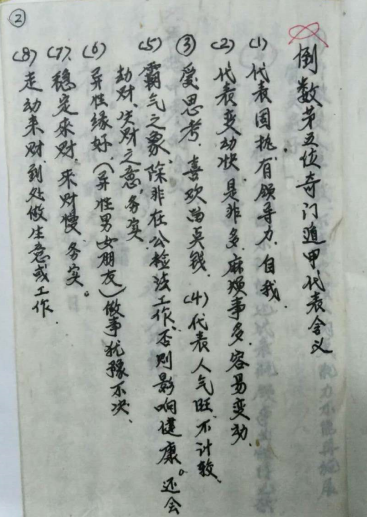 ②
倒数第五位奇门遁甲代表含义
(1) 代表固执、有领导力、自我、
(2) 代表变动快、是非多、麻烦事多、容易变动、
③ 爱思考、喜欢留真钱、(4)代表人气旺、不计较、
(5) 霸气之象、除非在公检法工作、否则影响健康。还会
劫财、决财之意、务实
(6) 异性缘好(异性男女朋友)做事犹豫不决、
(7) 稳定来财、来财慢、务实。
(8) 走动来财、到处做生意或工作.